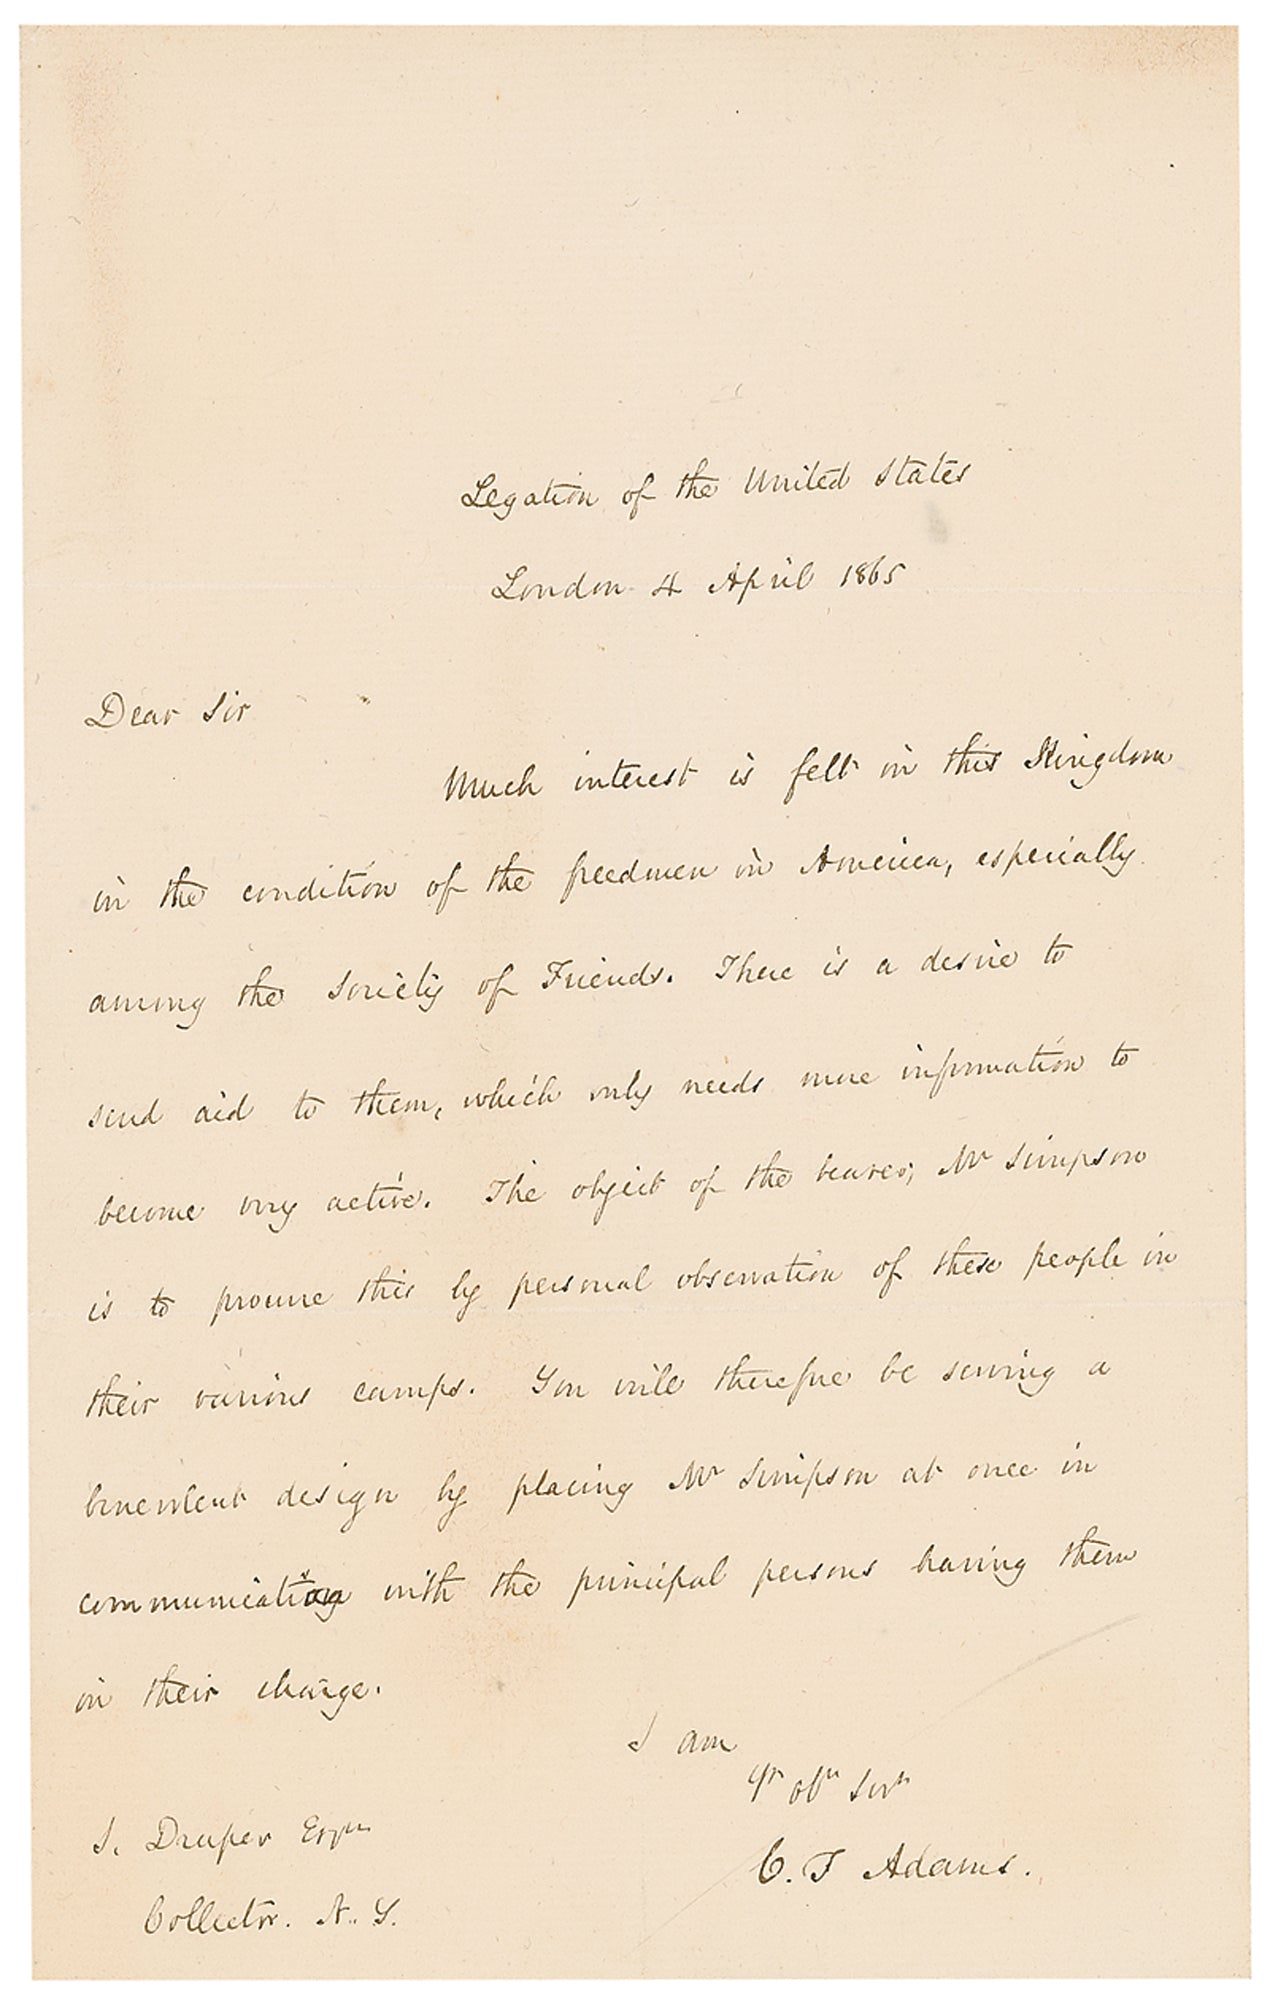 Legation of the United States
London 4 April 1865
Dear Sir
Much interest is felt in this Kingdom
in the condition of the freedmen in America, especially
among the Society of Friends. There is a desire to
send aid to them, which only needs more information to
become very active. The object of the bearer, Mr Simpson
is to procure this by personal observation of these people in
their various camps. You will therefore be serving a
benevolent design by placing Mr Simpson at once in
communication with the principal persons having them
in their charge.
I am
Yr obt Servt
C. F Adams.
S. Draper Esqre
Collector. N. Y.